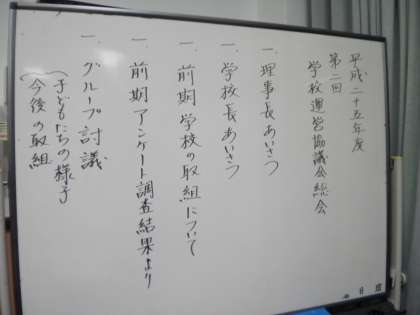 平成二十五年度
第二回
学校運営協議会総会
一、理事長あいさつ
一、学校長あいさつ
一、前期学校の取組について
一、前期アンケート調査結果より
一、グループ討議
（子どもたちの様子
今後の取組
月
日